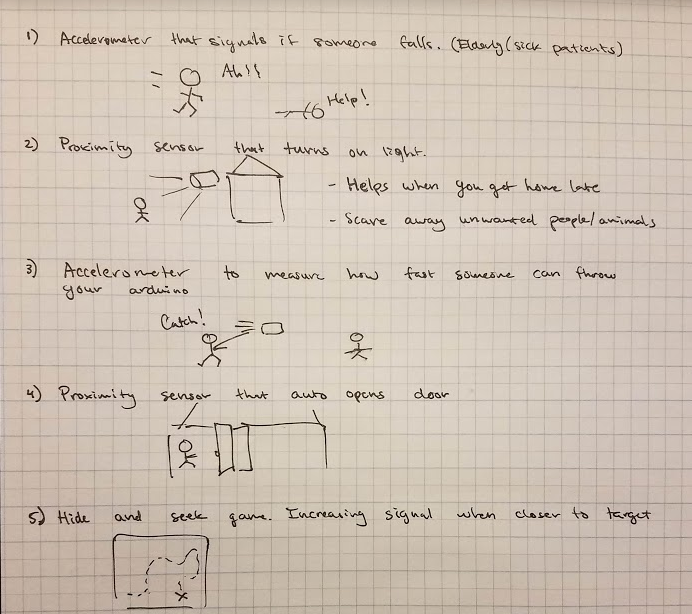 1) Accelerometer that signals if someone falls. (Elderly/sick patients)
Ah!!
Help!
2) Proximity sensor that turns on light.
- Helps when you get home late
- Scare away unwanted people/animals
3) Accelerometer to measure how fast someone can throw
your arduino
Catch!
4) Proximity sensor that auto opens door
5) Hide and seek game. Increasing signal when closer to target